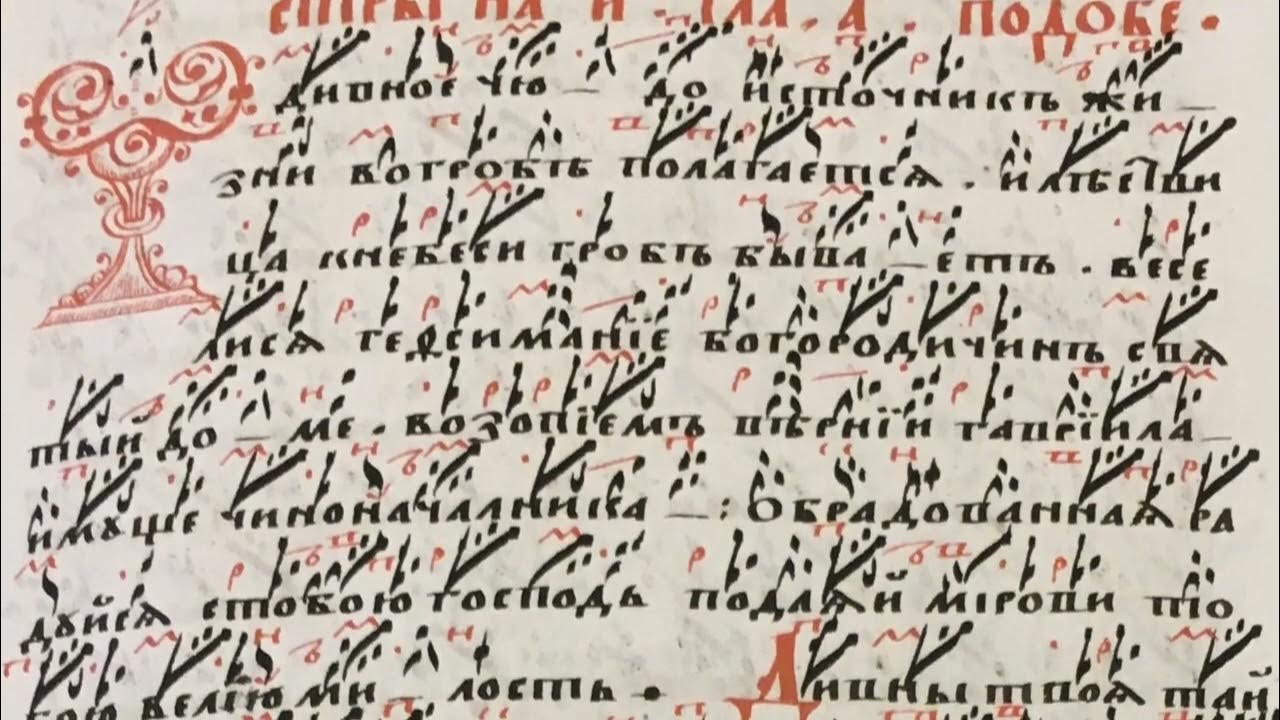 подобе.
дивное чю – до источникъ жи –
зни вогробѣ полагается. и лѣстви
ца кнебеси гробъ быва – етъ. весе
лися геѳсиманїе богородичинъ свя
тый до – ме. возопіемъ вѣрнїи гаврїила –
имуще чиноначалника – : Обрадованная ра
дуйся стобою господь подаяй мірови тво
ею велїю ми – лость.
Дивны твоя тай